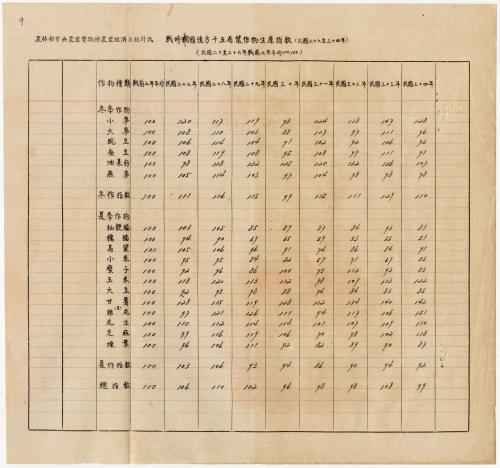 農林部中央農業實驗所農業經濟系統計於
戰時我國後方十五省農作物生產指數 (民國二十七至三十四年)
(民國二十至二十六年戰前七年平均=100)
作物種類 戰前七年平均 民國二十七年 民國二十八年 民國二十九年 民國三十年 民國三十一年 民國三十二年 民國三十三年 民國三十四年
冬季作物
小麥 100 120 117 119 98 124 118 147 128
大麥 100 108 110 103 88 107 97 111 96
豌豆 100 106 114 104 91 102 92 106 92
蠶豆 100 108 119 108 95 109 99 111 91
油菜籽 100 98 118 132 125 120 132 156 107
燕麥 100 105 114 103 97 104 98 98 98
冬作指數 100 111 116 115 99 115 111 129 110
夏季作物
秈粳稻 100 103 105 85 89 87 84 93 81
糯稻 100 94 90 69 65 59 53 55 51
高粱 100 105 106 96 91 74 86 84 91
小米 100 95 95 84 82 59 71 69 83
糜子 100 92 96 86 100 95 112 93 83
玉米 100 118 120 113 112 98 109 113 122
大豆 100 92 93 98 88 74 84 83 85
甘薯 100 128 115 119 118 112 134 140 142
棉花 100 97 121 126 111 94 117 106 151
花生 100 110 112 114 104 101 107 109 110
芝麻 100 79 116 119 106 70 98 102 118
煙葉 100 96 106 111 92 82 89 90 87
夏作指數 100 103 106 93 94 86 90 94 92
總指數 100 106 110 102 96 98 98 108 99